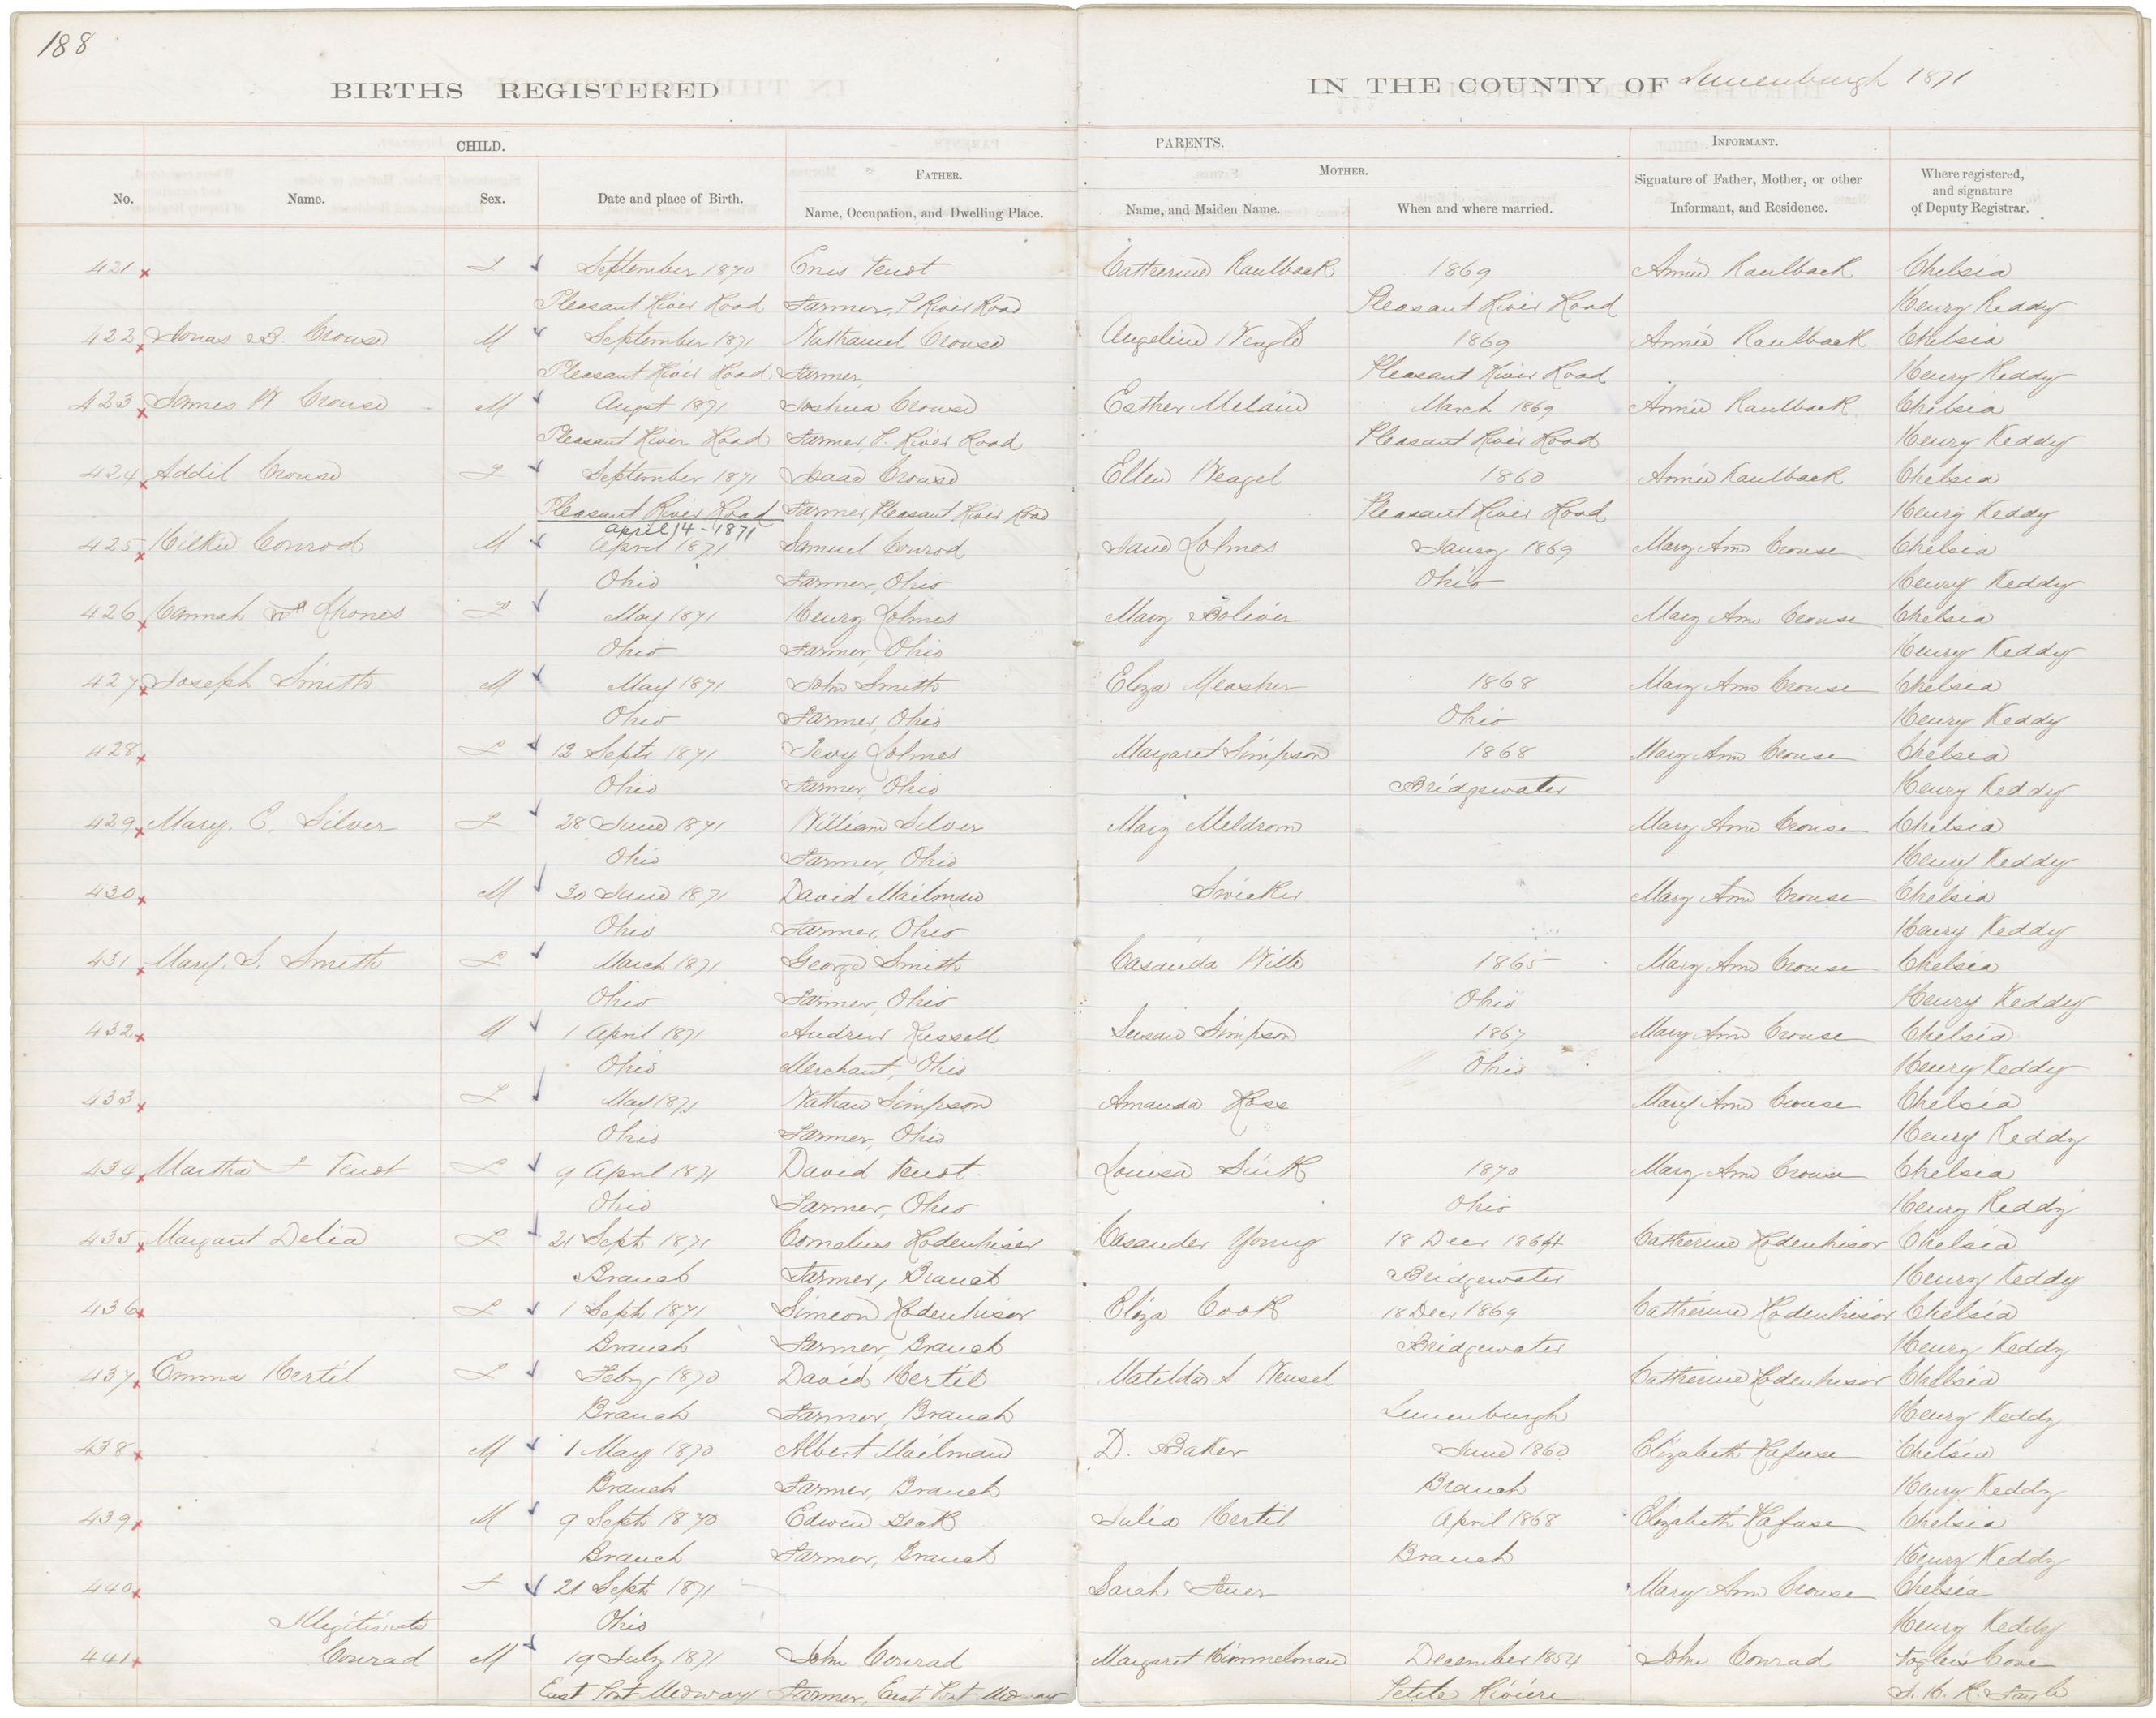 188
BIRTHS REGISTERED IN THE COUNTY OF Lunenburgh 1871
CHILD. PARENTS. INFORMANT.
FATHER. MOTHER.
No. Name. Sex. Date and place of Birth. Name, Occupation, and Dwelling Place. Name, and Maiden Name. When and where married. Signature of Father, Mother, or other Informant, and Residence. Where registered, and signature of Deputy Registrar.
421 F September 1870 Enos Catherine Raulback 1869 Annie Raulback Chelsia
Pleasant River Road Farmer, P River Road Pleasant River Road Henry Keddy
422 Jonas B. Crouse M September 1871 Nathaniel Crouse Angeline 1869 Annie Raulback Chelsia
Pleasant River Road Farmer, Pleasant River Road Henry Keddy
423 James W Crouse M Augst 1871 Joshua Crouse Esther 1869 Annie Raulback Chelsia
Pleasant River Road Farmer, P. River Road March Pleasant River Road Henry Keddy
424 Addil Crouse F September 1871 Isaac Crouse Ellen Weagel 1860 Annie Raulback Chelsia
Pleasant River Road Farmer, Pleasant River Road Pleasant River Road Henry Keddy
April 14-1871
425 Conrod M April 1871 Samuel Conrod Jane Jany 1869 Mary Ann Crouse Chelsia
Ohio Farmer, Ohio Ohio Henry Keddy
426 Hannah F May 1871 Henry Mary Boliver Mary Ann Crouse Chelsia
Ohio Farmer, Ohio Henry Keddy
427 Joseph Smith M May 1871 John Smith Eliza 1868 Mary Ann Crouse Chelsia
Ohio Farmer, Ohio Ohio Henry Keddy
428 F 12 Septr 1871 Margaret Simpson 1868 Mary Ann Crouse Chelsia
Ohio Farmer, Ohio Bridgewater Henry Keddy
429 Mary. C. Silver F 28 June 1871 William Silver Mary Meldrom Mary Ann Crouse Chelsia
Ohio Farmer, Ohio Henry Keddy
430 M 30 June 1871 David Mailman Swicker Mary Ann Crouse Chelsia
Ohio Farmer, Ohio Henry Keddy
431 Mary. S. Smith F March 1871 George Smith Casanda Wile 1865 Mary Ann Crouse Chelsia
Ohio Farmer, Ohio Ohio Henry Keddy
432 M 1 April 1871 Andrew Susan Simpson 1867 Mary Ann Crouse Chelsia
Ohio Merchant, Ohio Ohio Henry Keddy
433 F May 1871 Nathan Simpson Amanda Ross Mary Ann Crouse Chelsia
Ohio Farmer, Ohio Henry Keddy
434 Martha F 9 April 1871 David Louisa 1870 Mary Ann Crouse Chelsia
Ohio Farmer, Ohio Ohio Henry Keddy
435 Margaret Delia F 21 Sept 1871 Cornelius Rodenhiser Casander Young 18 Decr 1864 Catherine Rodenhisor Chelsia
Branch Farmer, Branch Bridgewater Henry Keddy
436 F 1 Sept 1871 Simeon Rodenhisor Eliza Cook 18 Decr 1869 Catherine Rodenhisor Chelsia
Branch Farmer, Branch Bridgewater Henry Keddy
437 Emma Hertil F Feby 1870 David Hertil Matilda S. Catherine Rodenhisor Chelsia
Branch Farmer, Branch Lunenburgh Henry Keddy
438 M 1 May 1870 Albert Mailman D. Baker June 1860 Elizabeth Hafuse Chelsia
Branch Farmer, Branch Branch Henry Keddy
439 M 9 Sept 1870 Edwin Julia Hertil April 1868 Elizabeth Hafuse Chelsia
Branch Farmer, Branch Branch Henry Keddy
440 F 21 Sept 1871 Sarah Mary Ann Crouse Chelsia
Illegitimate Ohio Henry Keddy
441 Conrad M 19 July 1871 John Conrad Margaret Himmelman December 1854 John Conrad Voglers Cove
East Port Medway Farmer, East Port Medway Petite Riviere